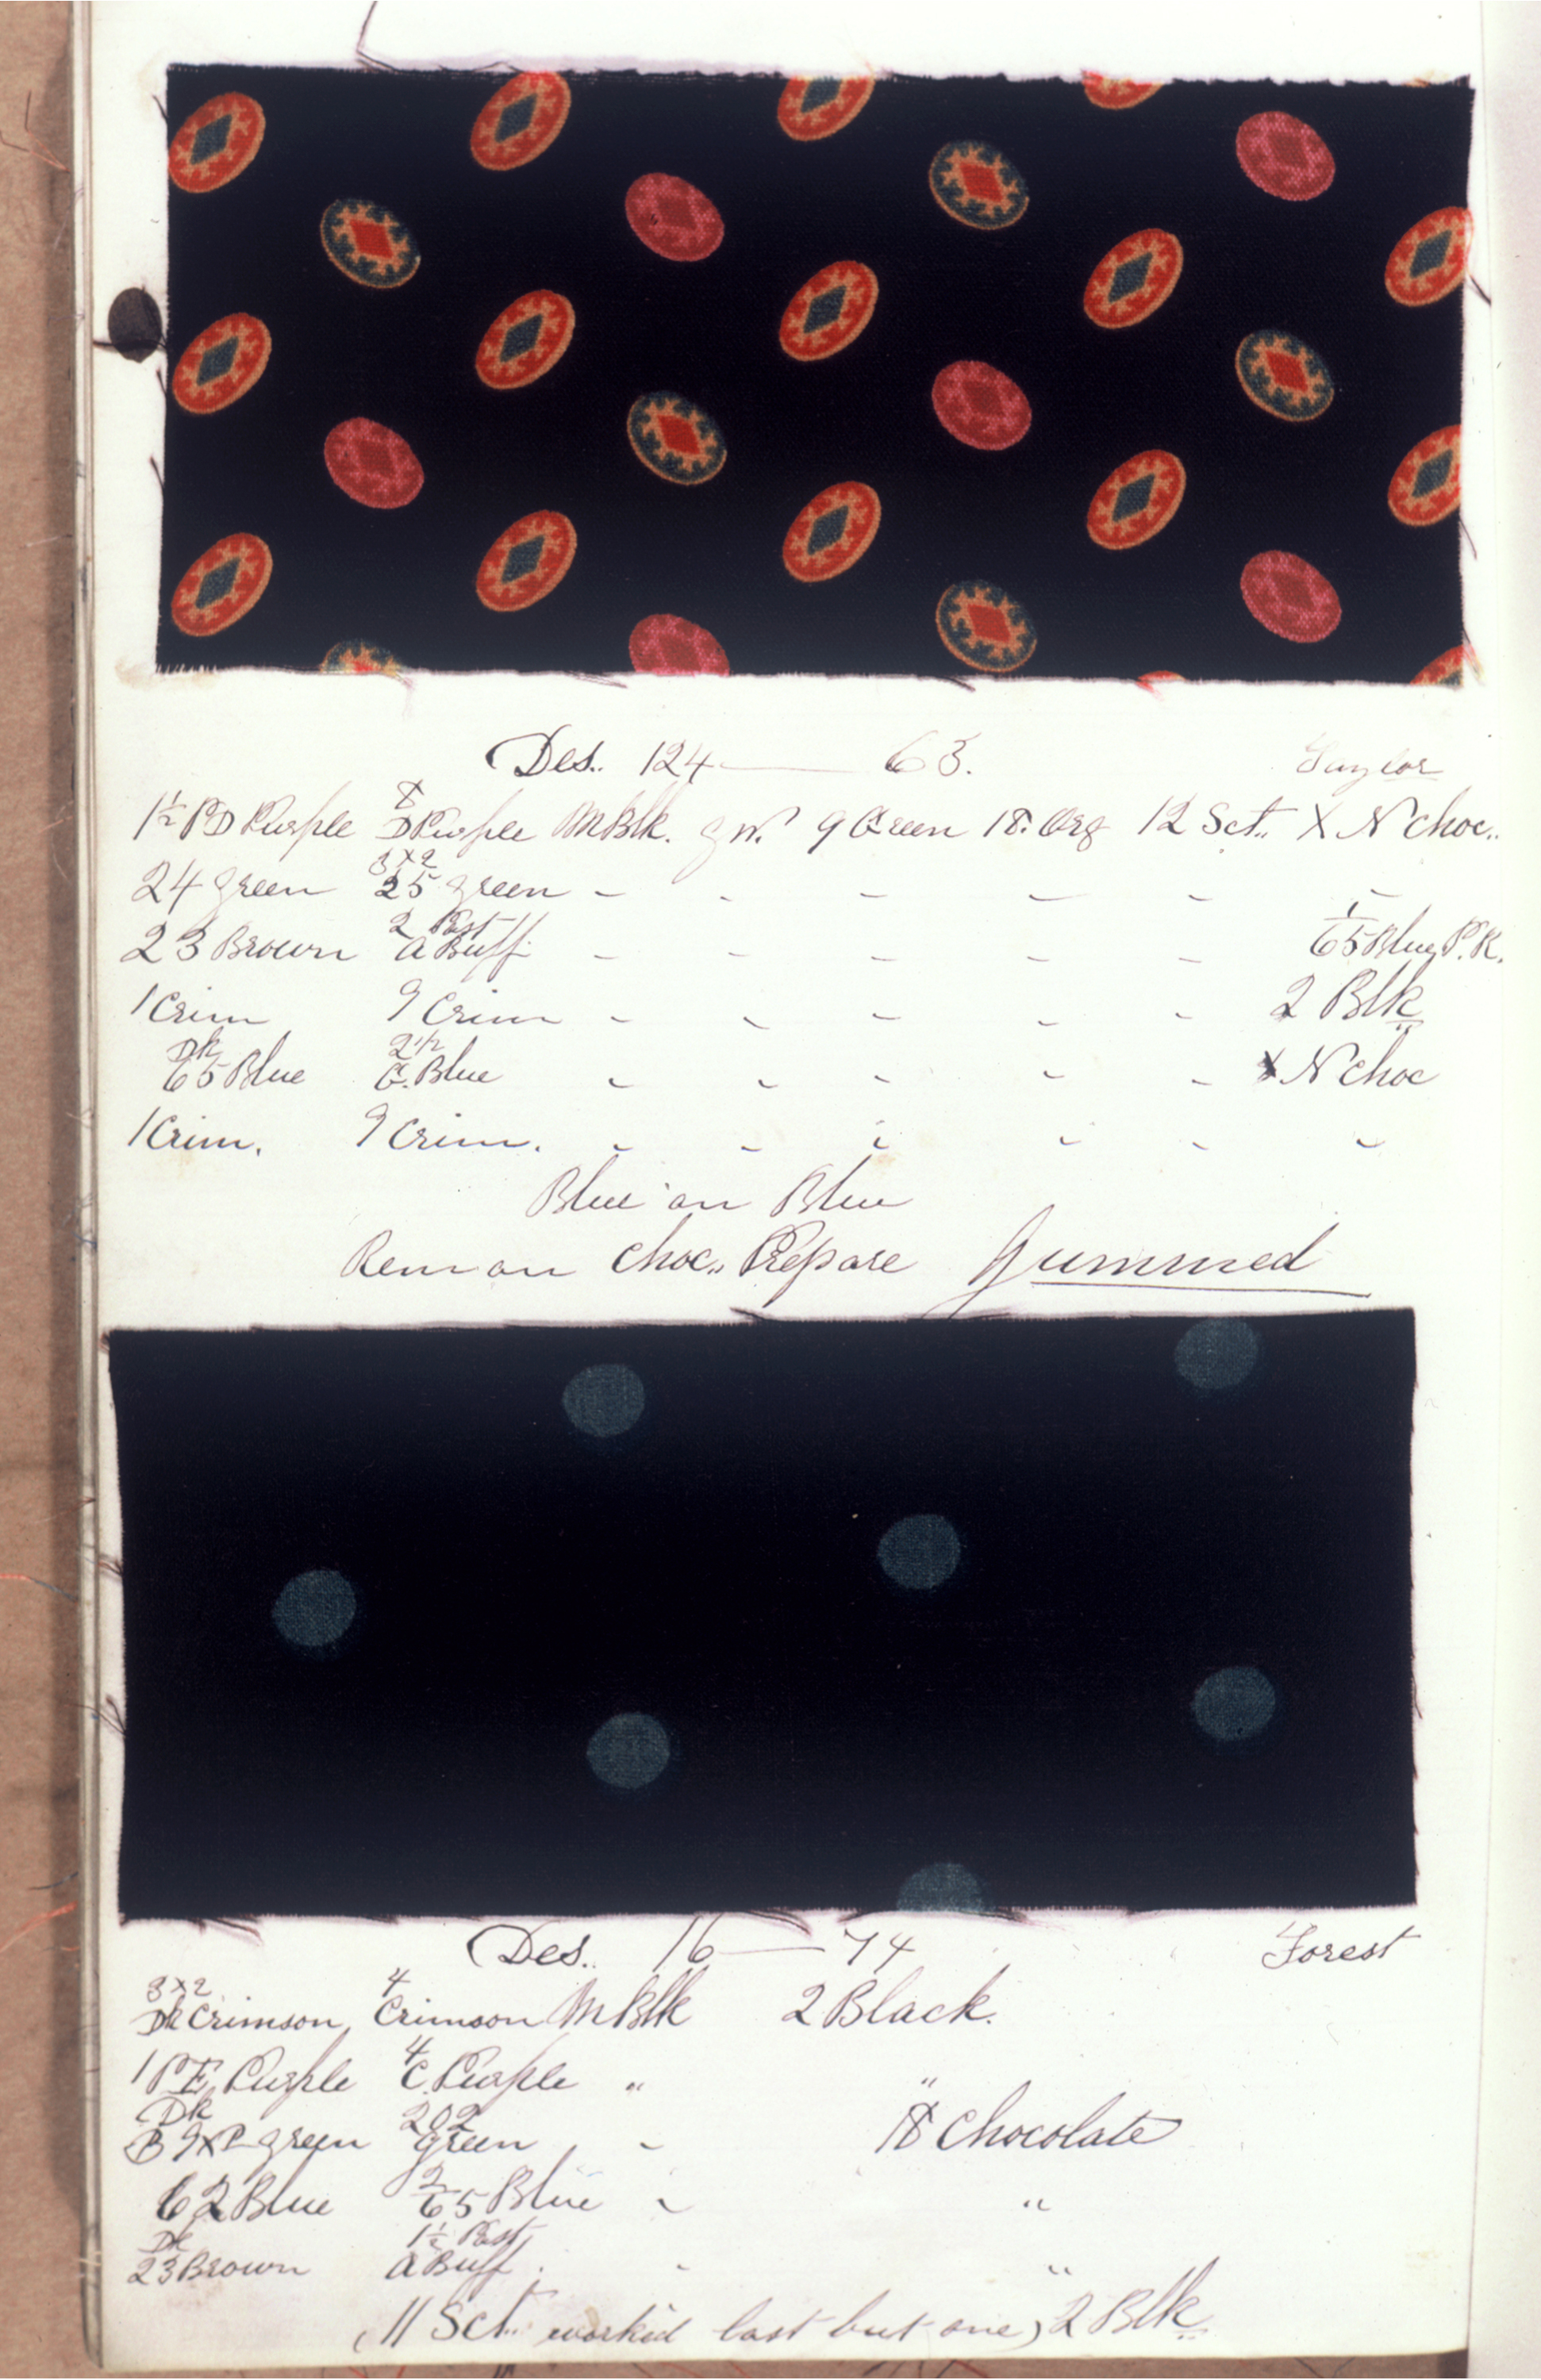 Des. 124 — 63. Taylor
1½ PD Purple 8 D Purple M Blk. 9 Green 18. Org 12 Sct. X N Choc.
24 Green 3x2 25 Green - - - - - -
23 Brown 2 Past A Buff - - - - - 1/65 Blue P.R.
1 Crim 9 Crim - - - - - 2 Blk
Dk 65 Blue 2 1/2 C. Blue - - - - - X N Choc
1 Crim. 9 Crim. - - - - - -
Blue on Blue
Rem on Choc. Prepare Gummed
Des. 16 — 74 Forest
3x2 Dk Crimson 4 Crimson M Blk 2 Black.
1 PE Purple 4 C. Purple " "
Dk green 202 Green - 18 Chocolate
62 Blue 2/65 Blue - "
Dk 23 Brown 1½ Past A Buff. - "
(11 Sct. worked last but one) 2 Blk